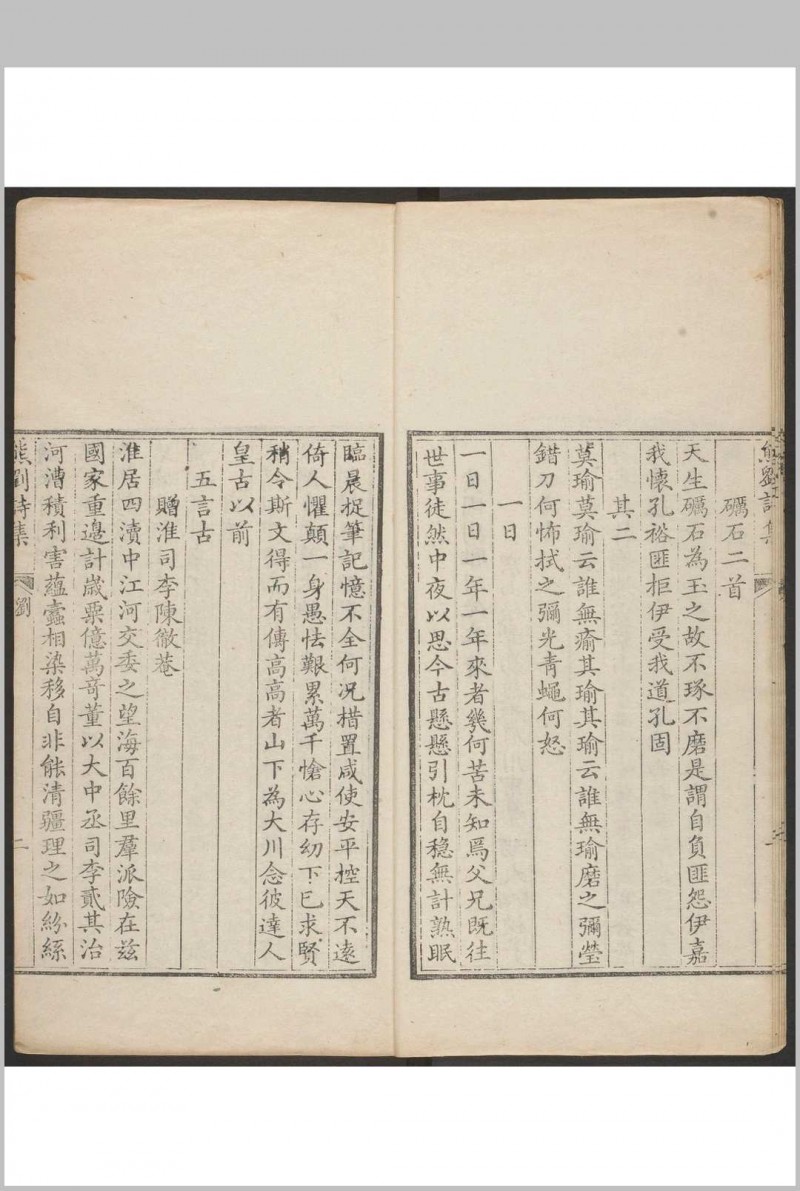 熊劉詩集
礪石二首
天生礪石為玉之故不琢不磨是謂自負匪怨伊嘉
我懷孔裕匪拒伊受我道孔固
其二
莫瑜莫瑜云誰無瘉其瑜其瑜云誰無瑜磨之彌瑩
錯刀何怖拭之彌光青蠅何怒
一日
一日一日一年一年來者幾何苦未知焉父兄既往
世事徒然中夜以思今古懸懸引枕自穏無計熟眠
臨晨捉筆記憶不全何況措置咸使安平控天不遠
倚人懼顛一身愚怯艱累萬千愴心存幼下已求賢
稍令斯文得而有傳高高者山下為大川念彼達人
皇古以前
五言古
贈淮司李陳徹菴
淮居四瀆中江河交委之望海百餘里羣派險在茲
國家重邊計歲粟億萬竒董以大中丞司李貳其治
河漕積利害蘊蠹相染移自非能清疆理之如紛絲
熊劉詩集
劉
二